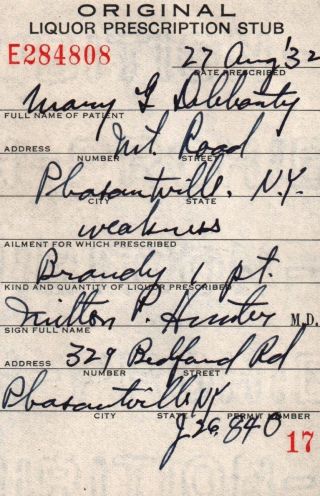 ORIGINAL
LIQUOR PRESCRIPTION STUB
E284808
27 Aug '32
DATE PRESCRIBED
Mary
FULL NAME OF PATIENT
ADDRESS Mt. Road
NUMBER STREET
Pleasantville, N.Y.
CITY STATE
weakness
AILMENT FOR WHICH PRESCRIBED
Brandy 1 pt.
KIND AND QUANTITY OF LIQUOR PRESCRIBED
Milton P. Hunter M.D.
SIGN FULL NAME
ADDRESS 329 Bedford Rd
NUMBER STREET
Pleasantville NY
CITY STATE PERMIT NUMBER
J26,840
17